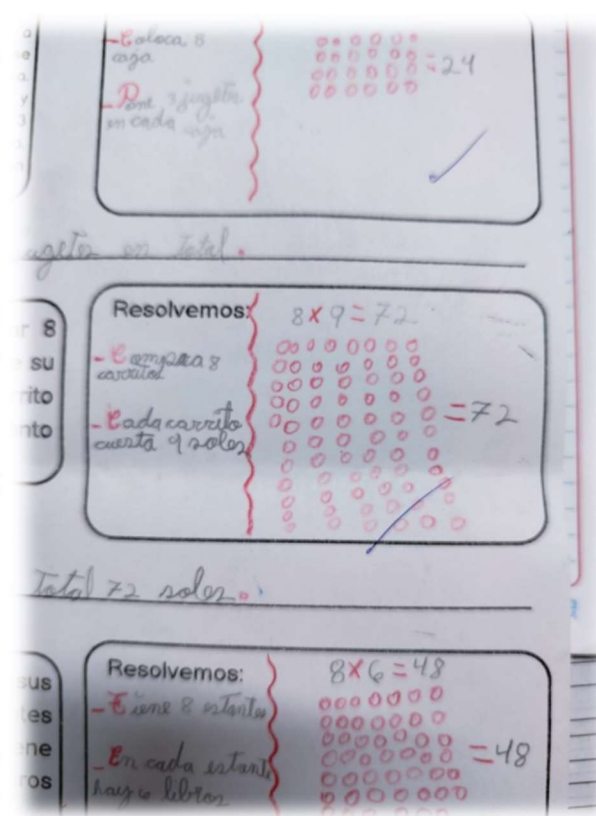 - Coloca 8
caja
= 24
- Pone 3 jugetes
en cada caja
jugetes en total.
r 8
su
rito
nto
Resolvemos:
8 x 9 = 72
- Compra 8
carritos
- Cada carrito
cuesta 9 soles
= 72
Total 72 soles.
sus
tes
ene
ros
Resolvemos:
8 x 6 = 48
- Tiene 8 estantes
- En cada estante
hay 6 libros
= 48